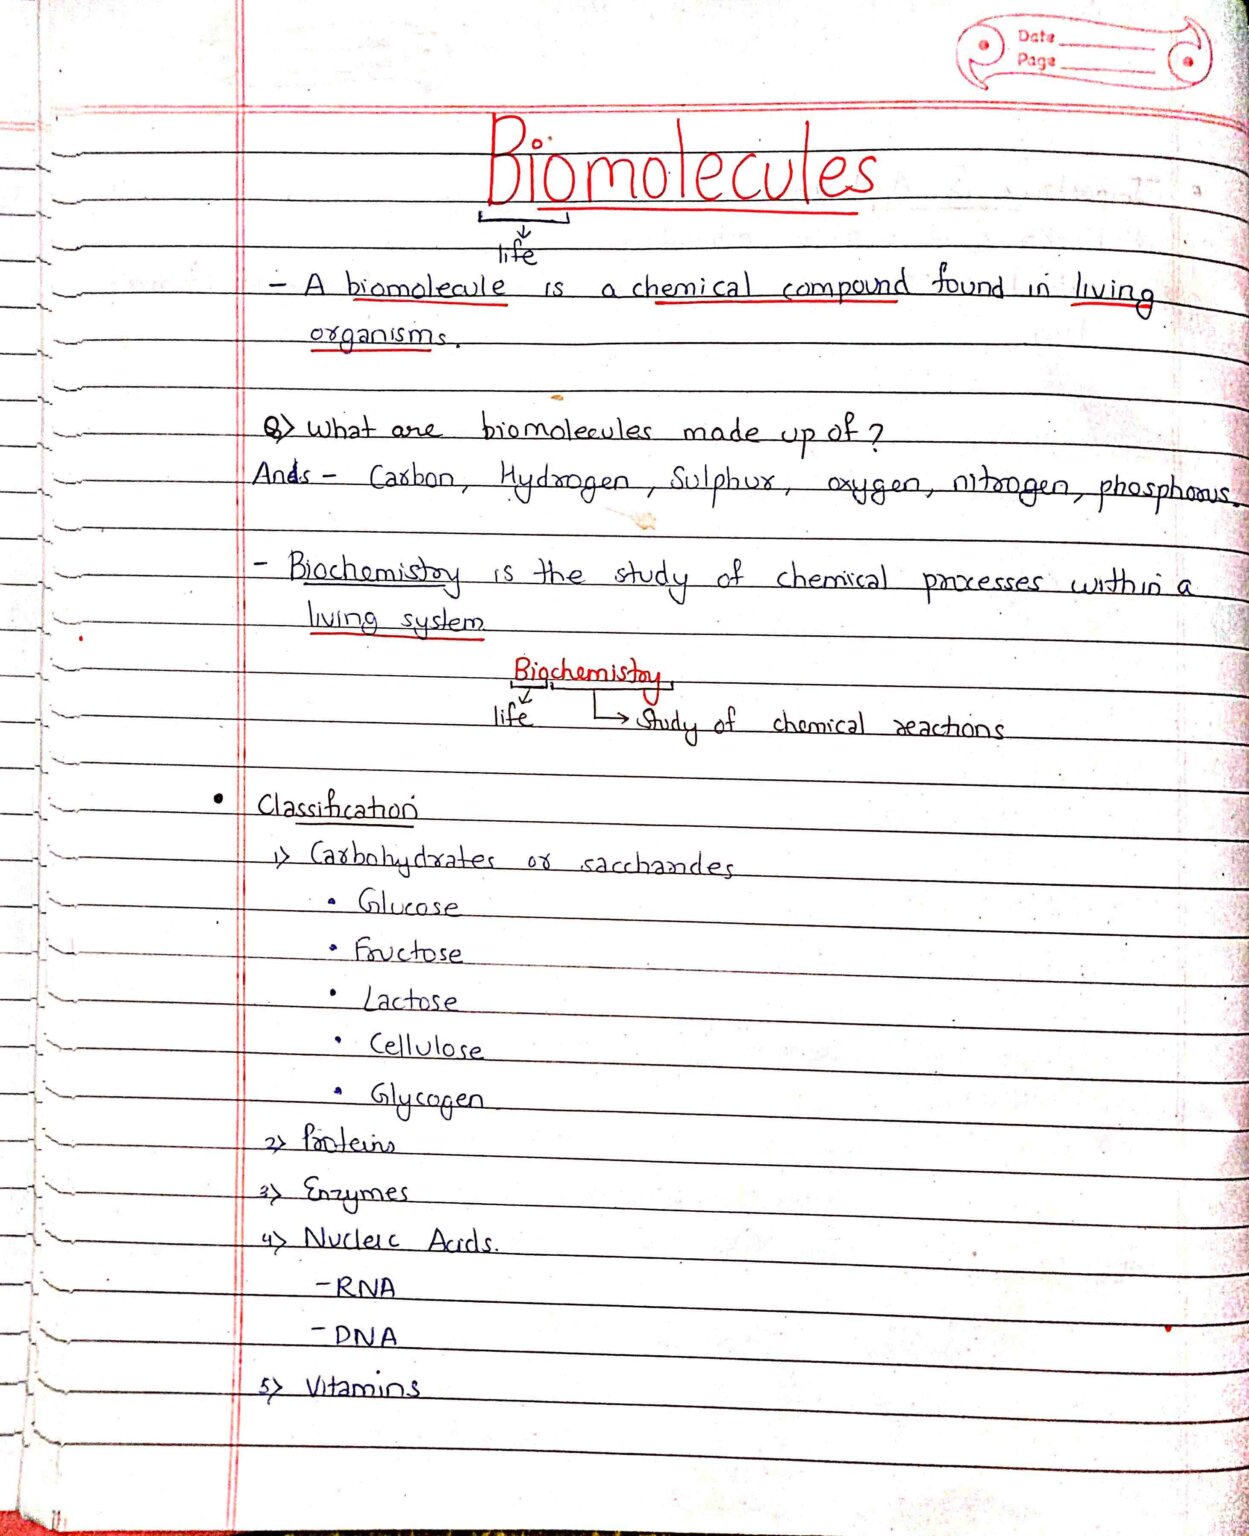 Date
Page
Biomolecules
life
- A biomolecule is a chemical compound found in living
organisms.
Q> What are biomolecules made up of?
Ans - Carbon, Hydrogen, Sulphur, oxygen, nitrogen, phosphorus.
- Biochemistry is the study of chemical processes within a
living system
Biochemistry
life → Study of chemical reactions
• Classification
1> Carbohydrates or saccharides
• Glucose
• Fructose
• Lactose
• Cellulose
• Glycogen
2> Proteins
3> Enzymes
4> Nucleic Acids.
- RNA
- DNA
5> Vitamins